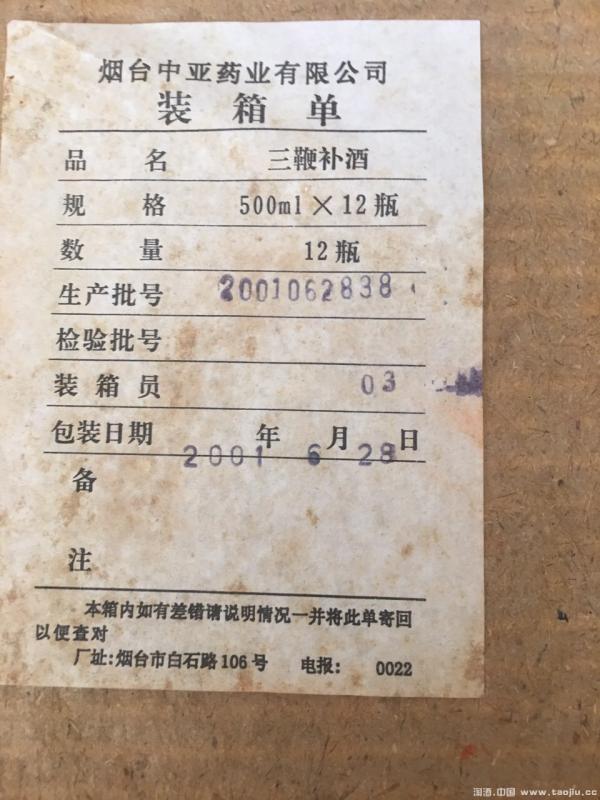 烟台中亚药业有限公司
装箱单
品名 三鞭补酒
规格 500ml×12瓶
数量 12瓶
生产批号 2001062838
检验批号
装箱员 03
包装日期 2001年6月28日
备
注
本箱内如有差错请说明情况一并将此单寄回
以便查对
厂址:烟台市白石路106号 电报: 0022
淘酒.中国 www.taojiu.cc